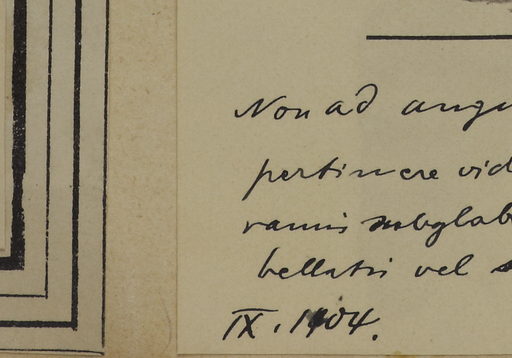 Non ad angu
pertinere vid
ramis subglab
bellatis vel s
IX. 1904.